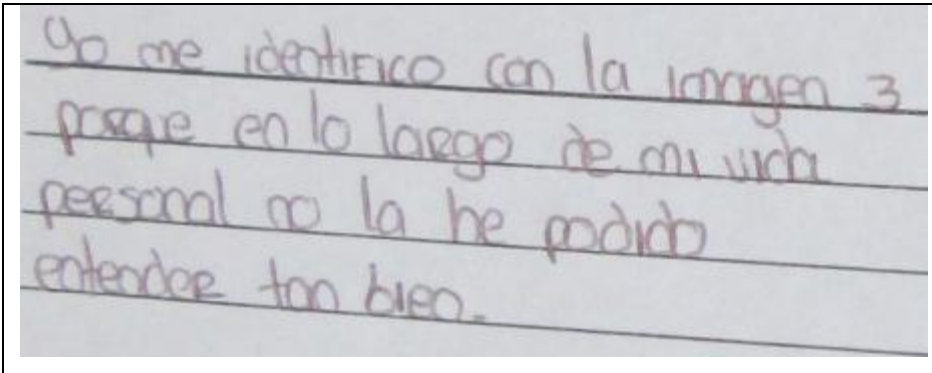 Yo me identifico con la imagen 3
porque en lo largo de mi vida
personal no la he podido
entender tan bien.